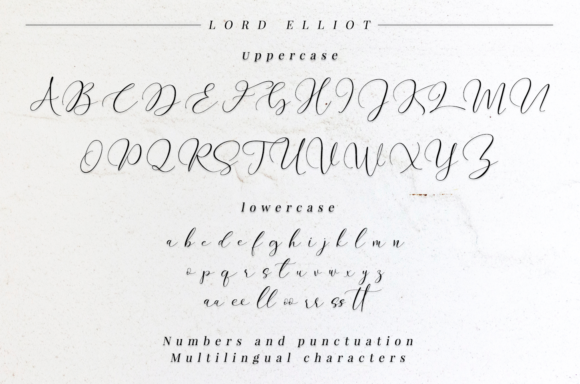 LORD ELLIOT
Uppercase
A B C D E F G H I J K L M N
O P Q R S T U V W X Y Z
lowercase
a b c d e f g h i j k l m n
o p q r s t u v w x y z
aa ee ll oo rr ss tt
Numbers and punctuation
Multilingual characters